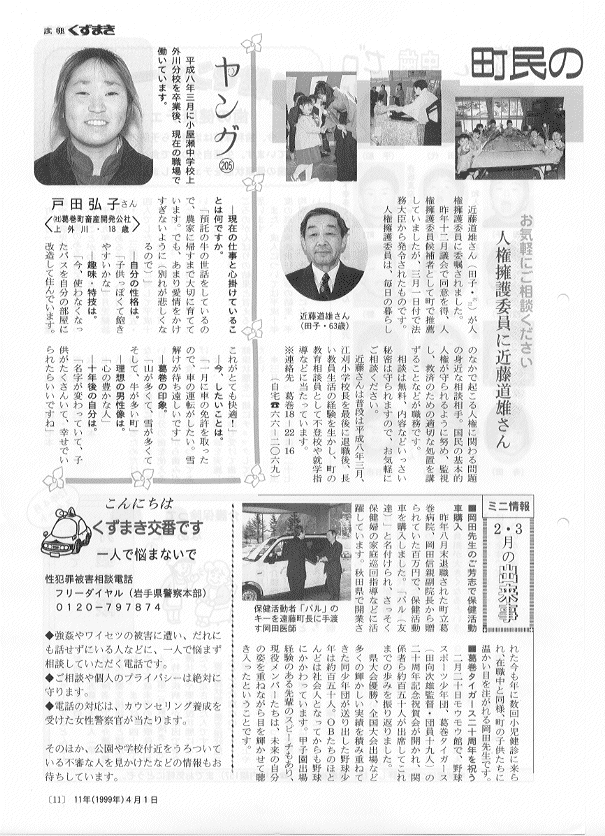 広報 くずまき
町民の
お気軽にご相談ください
人権擁護委員に近藤道雄さん
近藤道雄さん(田子・63)が人
権擁護委員に委嘱されました。
昨年十二月議会で同意を得、人
権擁護委員候補者として町で推薦
していましたが、三月一日付で法
務大臣から発令されたものです。
人権擁護委員は、毎日の暮らし
のなかで起こる人権に関わる問題
の身近な相談相手。国民の基本的
人権が守られるように努め、監視
し、救済のための適切な処置を講
ずることなどが職務です。
相談は無料。内容などいっさい
秘密は守られますので、お気軽に
ご相談ください。
近藤さんは普段は平成八年三月、
江刈小学校長を最後に退職後、長
い教員生活の経験を生かし、町の
教育相談員として不登校や就学指
導などに当たっています。
※連絡先 葛巻18-22-16
(自宅☎六六-二〇六九)
近藤道雄さん
(田子・63歳)
ヤング
205
平成八年三月に小屋瀬中学校上
外川分校を卒業後、現在の職場で
働いています。
戸田弘子さん
〈㈳葛巻町畜産開発公社〉
上外川・18歳
―現在の仕事と心掛けているこ
とは何ですか。
「預託の牛の世話をしているの
で、農家に帰すまで大切に育てて
います。でも、あまり愛情をかけ
すぎないように(別れが悲しくな
るので)」
―自分の性格は。
「子供っぽくて飽き
やすいかな」
―趣味・特技は。
「今、使わなくなっ
たバスを自分の部屋に
改造して住んでいます。
これがとても快適!」
―今、したいことは。
「一月に車の免許を取った
ので、車の運転がしたい。雪
解けが待ち遠しいです」
―葛巻の印象。
「山が多くて、雪が多くて
そして、牛が多い町」
―理想の男性像は。
「心の豊かな人」
―十年後の自分は。
「名字が変わっていて、子
供がたくさんいて、幸せでい
られたらいいですね」
ミニ情報
2・3
月の出来事
■岡田先生のご芳志で保健活動
車購入
昨年八月末退職された町立葛
巻病院、岡田信親副院長から贈
られていた百万円で、保健活動
車を購入しました。「パル(友
達)」と名付けられ、さっそく
保健婦の家庭巡回指導などに活
躍しています。秋田県で開業さ
れた今も年に数回小児健診に来ら
れ、在職中と同様、町の子供たちに
温かい目を注がれる岡田先生です。
■葛巻タイガース二十周年を祝う
二月二十日モウモウ館で、野球
スポーツ少年団、葛巻タイガース
(田向次雄監督・団員十九人)の
二十周年記念祝賀会が開かれ、関
係者ら約百五十人が出席してこれ
までの歩みを振り返りました。
県大会優勝、全国大会出場など
多くの輝かしい実績を積み重ねて
きた同少年団が送り出した野球少
年は約百五十人。OBたちのほと
んどは社会人となってからも野球
にかかわっています。甲子園出場
経験のある先輩のスピーチもあり、
現役メンバーたちは、未来の自分
の姿を重ねながら目を輝かせて聴
き入ったということです。
保健活動者「パル」の
キーを遠藤町長に手渡
す岡田医師
こんにちは
くずまき交番です
一人で悩まないで
性犯罪被害相談電話
フリーダイヤル(岩手県警察本部)
0120-797874
◆強姦やワイセツの被害に遭い、だれに
も話せずにいる人などに、一人で悩まず
相談していただく電話です。
◆ご相談や個人のプライバシーは絶対に
守ります。
◆電話の対応は、カウンセリング養成を
受けた女性警察官が当たります。
そのほか、公園や学校付近をうろついて
いる不審な人を見かけたなどの情報もお
待ちしています。
〔11〕 11年(1999年)4月1日